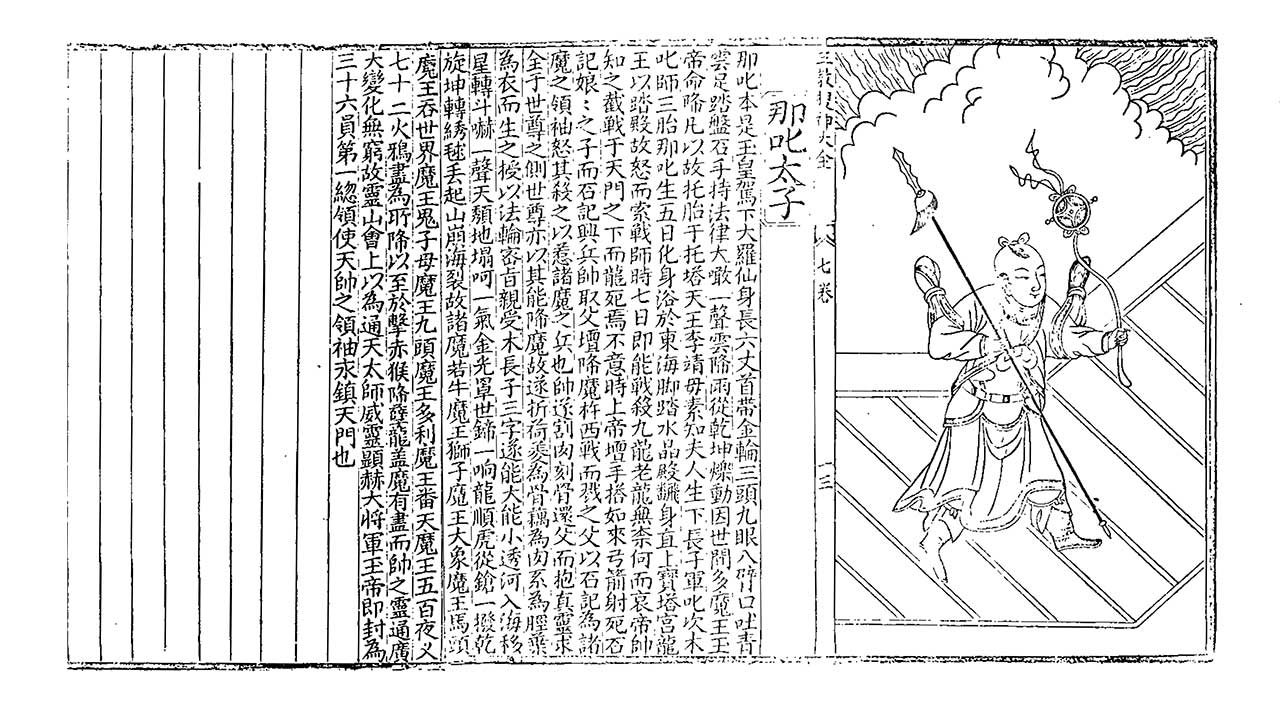 三教搜神大全
七卷
十三
那叱太子
那叱本是玉皇駕下大羅仙身長六丈首帶金輪三頭九眼八臂口吐青
雲足踏盤石手持法律大噉一聲雲降雨從乾坤爍動因世間多魔王玉
帝命降凡以故托胎于托塔天王李靖母素知夫人生下長子軍叱次木
叱師三胎那叱生五日化身浴於東海脚踏水晶殿飜身直上寶塔宫龍
王以踏殿故怒而索戰師時七日即能戰殺九龍老龍無柰何而哀帝帥
知之截戰于天門之下而龍死焉不意時上帝壇手搭如來弓箭射死石
記娘〻之子而石記興兵帥取父壇降魔杵西戰而戮之父以石記為諸
魔之領袖怒其殺之以惹諸魔之兵也帥遂割肉刻骨還父而抱真靈求
全于世尊之側世尊亦以其能降魔故遂折荷菱為骨藕為肉系為脛葉
為衣而生之授以法輪密旨親受木長子三字遂能大能小透河入海移
星轉斗嚇一聲天頽地塌呵一氣金光罩世鍗一响龍順虎從鎗一撥乾
旋坤轉綉毬丢起山崩海裂故諸魔若牛魔王獅子魔王大象魔王馬頭
魔王吞世界魔王鬼子母魔王九頭魔王多利魔王番天魔王五百夜义
七十二火鴉盡為所降以至於擊赤猴降孽龍盖魔有盡而帥之靈通廣
大變化無窮故靈山會上以為通天太師威靈顯赫大將軍玉帝即封為
三十六員第一緫領使天帥之領袖永鎮天門也